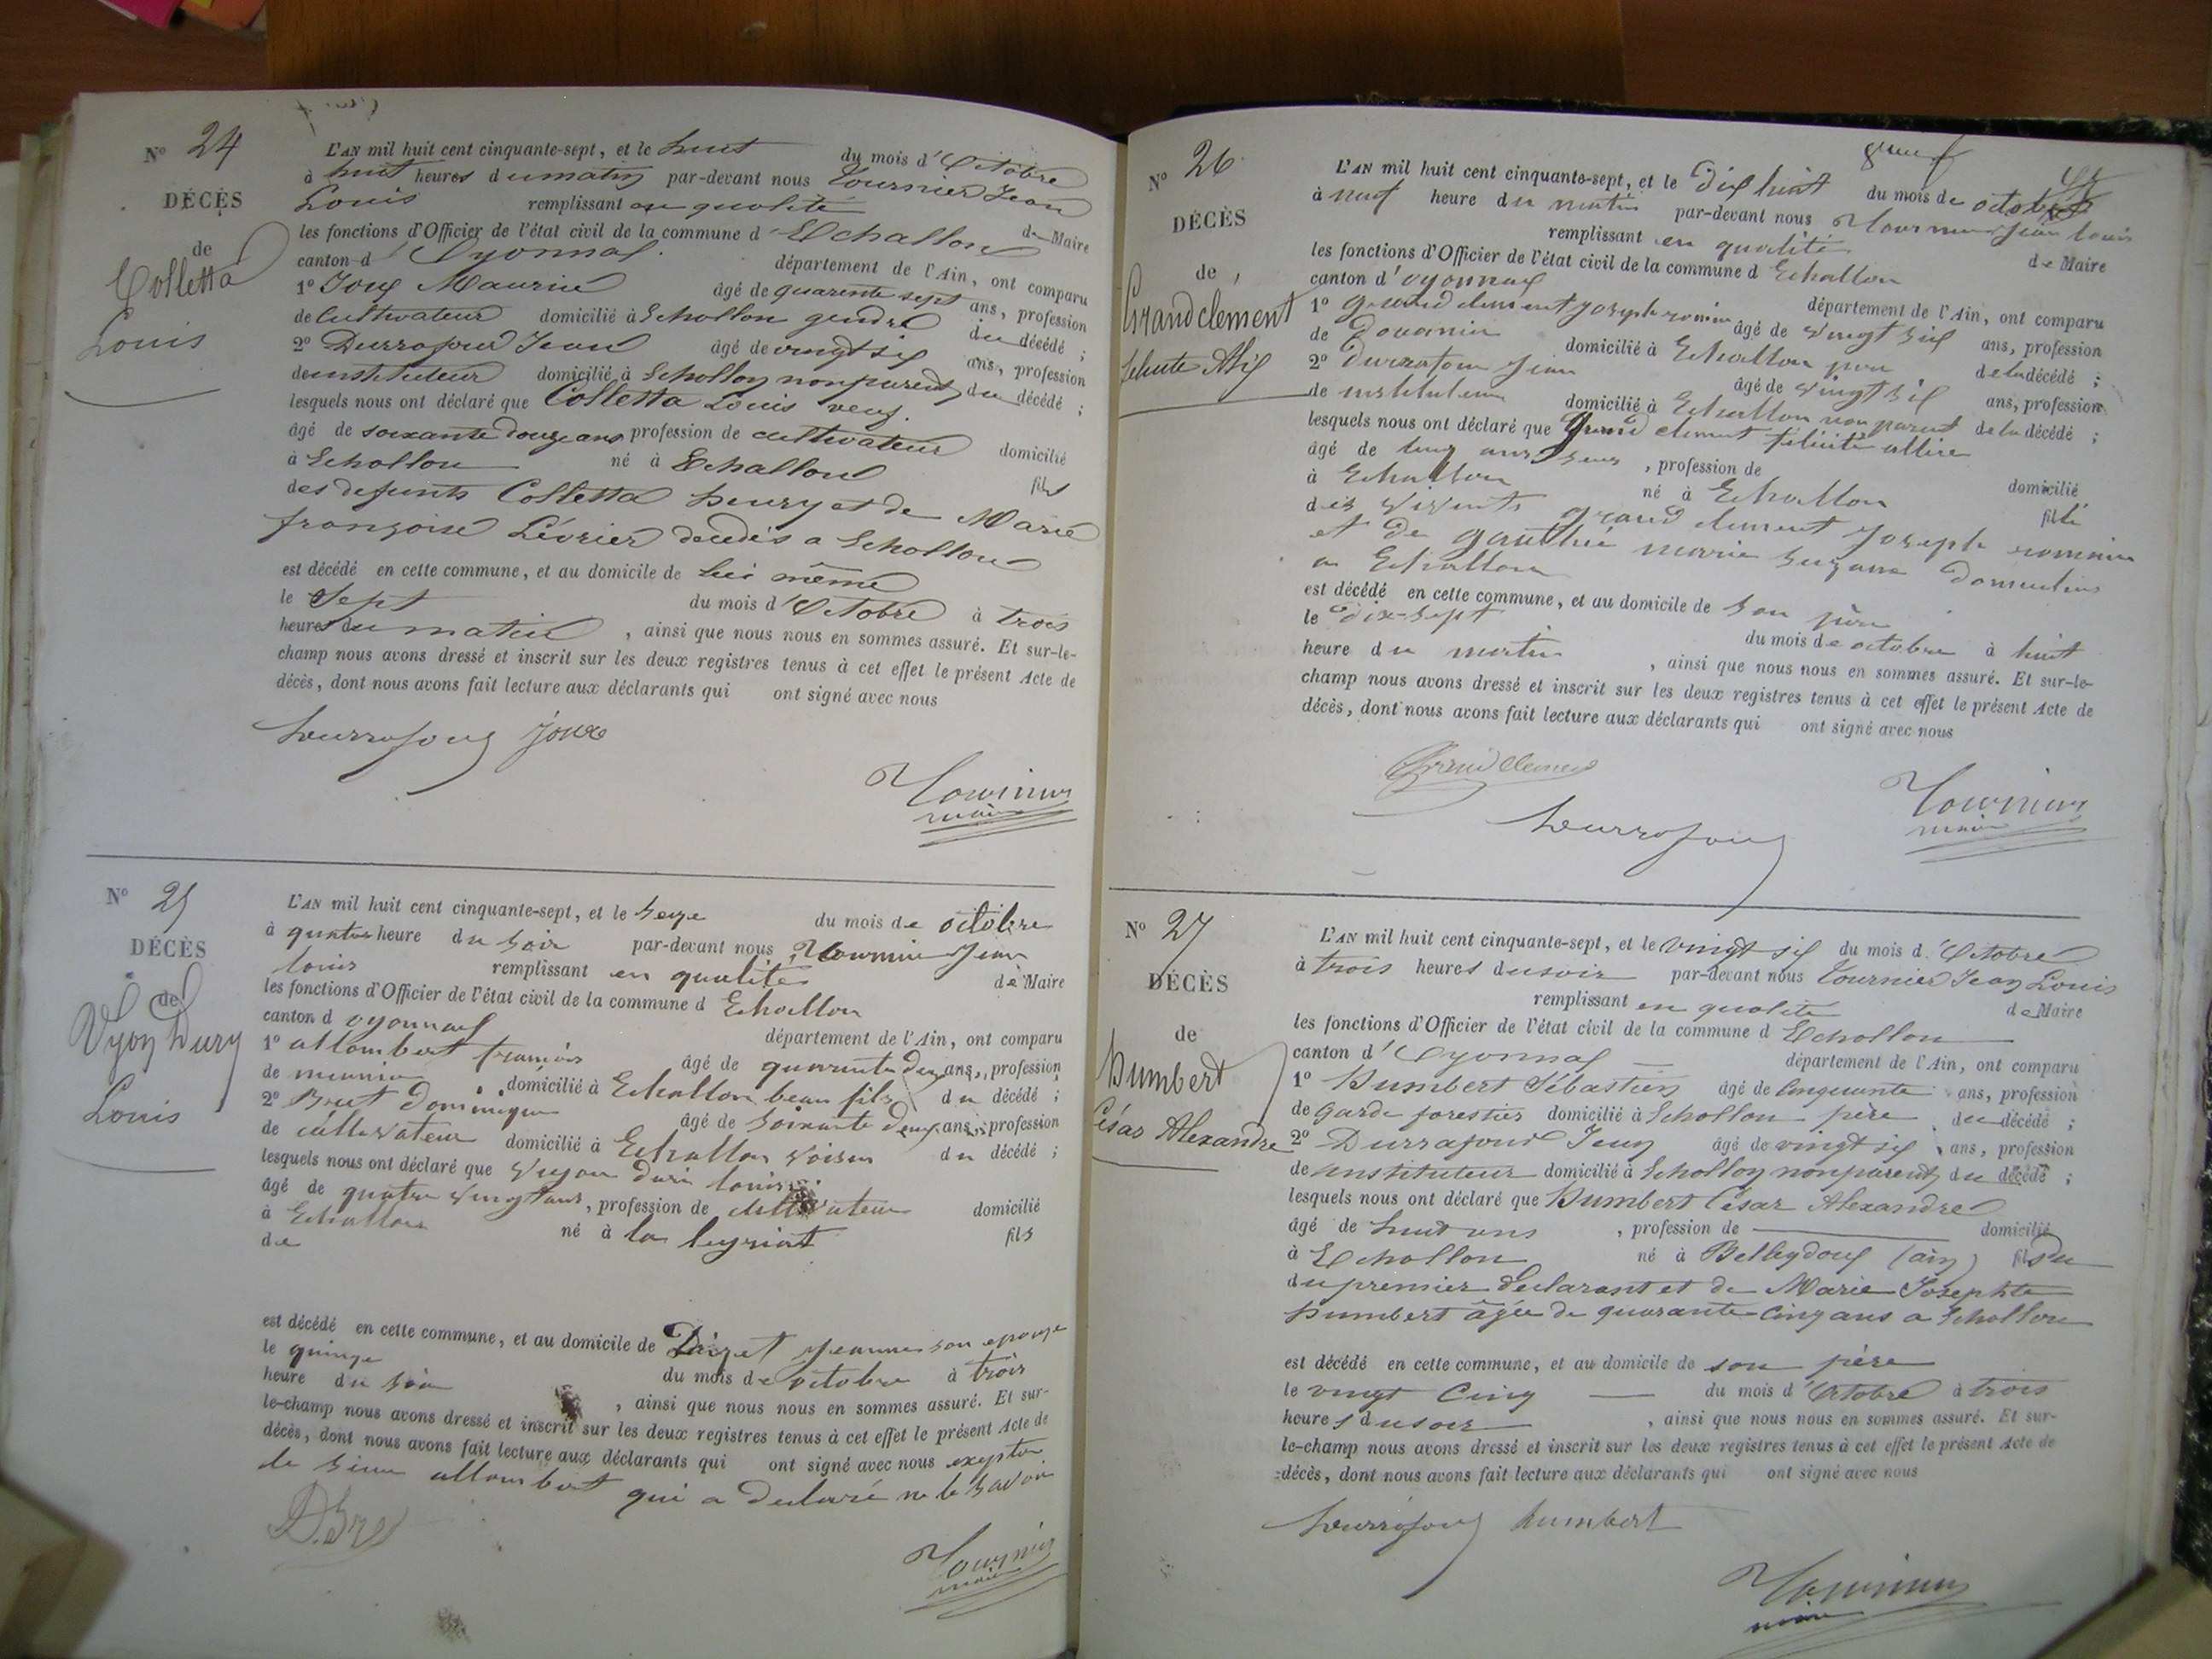 Nº 24
DÉCÈS
de
Colletta
Louis
L'AN mil huit cent cinquante-sept, et le huit du mois d'Octobre
à huit heures du matin par-devant nous Tournier Jean
Louis remplissant en qualité de Maire
les fonctions d'Officier de l'état civil de la commune d'Echallon
canton d'Oyonnax. département de l'Ain, ont comparu
1º Joux Maurice âgé de quarente sept ans, profession
de cultivateur domicilié à Echallon gendre du décédé ;
2º Durrafour Jean âgé de vingt six ans, profession
de instituteur domicilié à Echallon non parent du décédé ;
lesquels nous ont déclaré que Colletta Louis veuf
âgé de soixante douze ans profession de cultivateur domicilié
à Echallon né à Echallon fils
des defunts Colletta henry et de Marie
françoise Lévrier décédés a Echallon
est décédé en cette commune, et au domicile de lui même
le Sept du mois d'Octobre à trois
heures du matin, ainsi que nous nous en sommes assuré. Et sur-le-
champ nous avons dressé et inscrit sur les deux registres tenus à cet effet le présent Acte de
décès, dont nous avons fait lecture aux déclarants qui ont signé avec nous
Durrafour Joux
Tournier
maire
Nº 25
DÉCÈS
de
Vyon Dury
Louis
L'AN mil huit cent cinquante-sept, et le seize du mois de octobre
à quatre heure du soir par-devant nous Tournier Jean
louis remplissant en qualité de Maire
les fonctions d'Officier de l'état civil de la commune d Echallon
canton d oyonnax département de l'Ain, ont comparu
1º allombert françois âgé de quarante deux ans, profession
de meunier domicilié à Echallon beau fils du décédé ;
2º Bret Dominique âgé de soixante deux ans, profession
de cultivateur domicilié à Echallon voisin du décédé ;
lesquels nous ont déclaré que Vuyon duri louis
âgé de quatre vingt ans, profession de cultivateur domicilié
à Echallon né à la leyriat fils
de
est décédé en cette commune, et au domicile de jeanne son epouse
le quinze du mois de octobre à trois
heure du soir, ainsi que nous nous en sommes assuré. Et sur-
le-champ nous avons dressé et inscrit sur les deux registres tenus à cet effet le présent Acte de
décès, dont nous avons fait lecture aux déclarants qui ont signé avec nous excepter
le sieur allombert qui a declaré ne le savoir
D. Bret
Tournier
maire
Nº 26
DÉCÈS
de
Grandclément
L'AN mil huit cent cinquante-sept, et le dix huit du mois de octobre
à neuf heure du matin par-devant nous Tournier Jean louis
remplissant en qualité de Maire
les fonctions d'Officier de l'état civil de la commune d Echallon
canton d'oyonnax département de l'Ain, ont comparu
1º grand clement joseph romain âgé de vingt six ans, profession
de douanier domicilié à Echallon père de la décédé ;
2º Durrafour Jean âgé de vingt six ans, profession
de instituteur domicilié à Echallon non parent de la décédé ;
lesquels nous ont déclaré que Grand clement félicité
âgé de, profession de domicilié
à Echallon né à Echallon fille
des vivants grand clement Joseph romain
et de gauthié marie suzanne domiciliés
a Echallon
est décédé en cette commune, et au domicile de son père
le dix-sept du mois de octobre à huit
heure du matin, ainsi que nous nous en sommes assuré. Et sur-le-
champ nous avons dressé et inscrit sur les deux registres tenus à cet effet le présent Acte de
décès, dont nous avons fait lecture aux déclarants qui ont signé avec nous
Grandclement
Durrafour
Tournier
maire
Nº 27
DÉCÈS
de
Humbert
César Alexandre
L'AN mil huit cent cinquante-sept, et le vingt six du mois d'Octobre
à trois heures du soir par-devant nous Tournier Jean Louis
remplissant en qualité de Maire
les fonctions d'Officier de l'état civil de la commune d Echallon
canton d'Oyonnax département de l'Ain, ont comparu
1º Humbert Sébastien âgé de cinquante ans, profession
de garde forestier domicilié à Echallon père du décédé ;
2º Durrafour Jean âgé de vingt six ans, profession
de instituteur domicilié à Echallon non parent du décédé ;
lesquels nous ont déclaré que Humbert César Alexandre
âgé de huit ans, profession de domicilié
à Echallon né à Belleydoux (ain) fils du
du premier déclarant et de Marie Josephte
Humbert âgée de quarante cinq ans a Echallon
est décédé en cette commune, et au domicile de son père
le vingt cinq du mois d'Octobre à trois
heures du soir, ainsi que nous nous en sommes assuré. Et sur-
le-champ nous avons dressé et inscrit sur les deux registres tenus à cet effet le présent Acte de
décès, dont nous avons fait lecture aux déclarants qui ont signé avec nous
Durrafour humbert
Tournier
maire